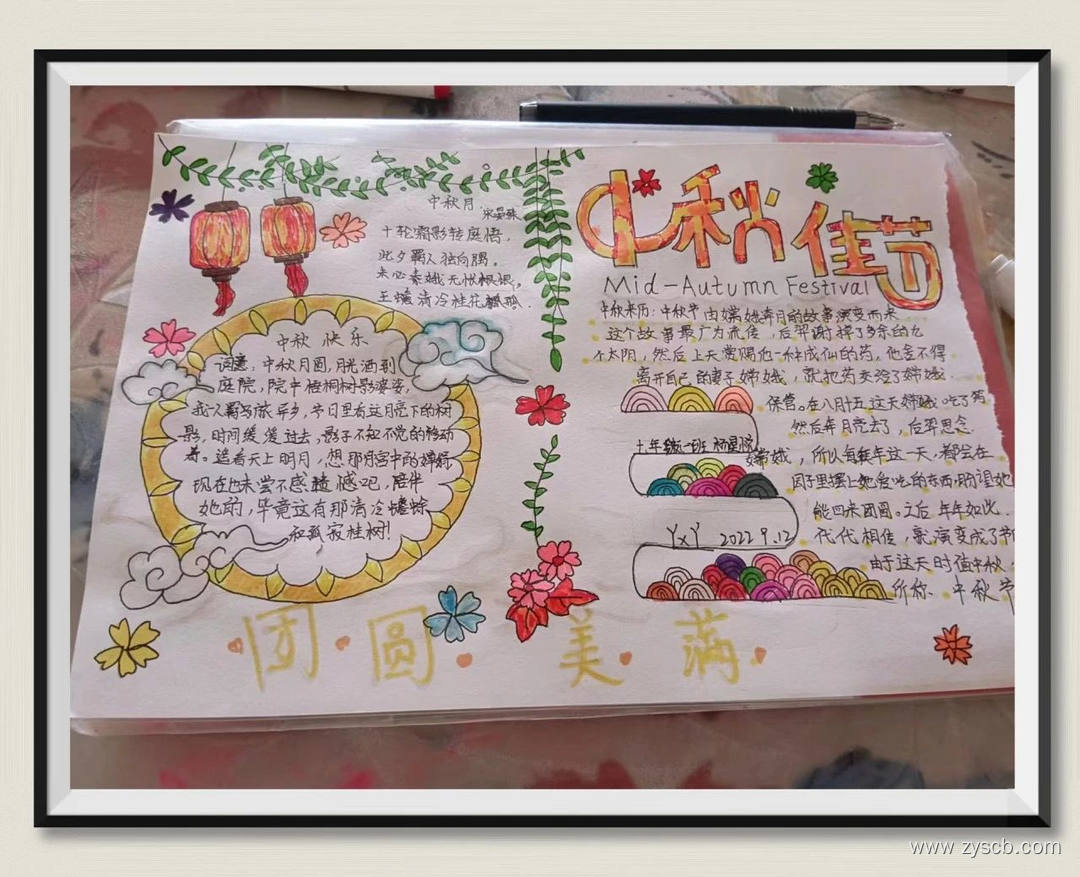 中秋月
宋晏殊
十轮霜影转庭梧,
此夕羁人独向隅。
未必素娥无怅恨,
玉蟾清冷桂花孤.
中秋快乐
词意:中秋月圆,月光洒到
庭院,院中梧桐树影婆娑,
我人羁旅异乡,节日里看这月亮下的树
影,时间缓缓过去,影子不知不觉的移动
着。追着天上明月,想那月宫中的嫦娥
现在也未尝不感遗憾吧,陪伴
她的,毕竟这有那清冷蟾蜍
和孤寂桂树!
中秋佳节
Mid-Autumn Festival
中秋来历:中秋节由嫦娥奔月的故事演变而来
这个故事最广为流传,后羿谢掉了多余的九
个太阳,然后上天赏赐他一种成仙的药,他舍不得
离开自己的妻子嫦娥,就把药交给了嫦娥.
保管。在八月十五这天嫦娥吃了药
然后奔月亮去了,后羿思念
嫦娥,所以每年这一天,都会在
园子里摆上她爱吃的东西,盼望她
能回来团圆。之后年年如此.
代代相传,就演变成了节
由于这天时值中秋
所称中秋节
七年级一班
YxY 2022 9.12
团圆美满
www.zyscb.com